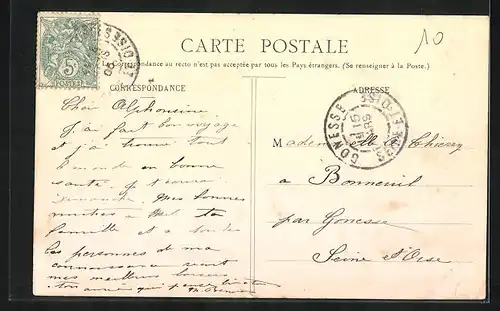 10
CARTE POSTALE
La Correspondance au recto n'est pas acceptée par tous les Pays étrangers. (Se renseigner à la Poste.)
CORRESPONDANCE
ADRESSE
5c
GONESSE
Alphonsine
J'ai fait bon voyage
et j'ai trouvé tout
le monde en bonne
santé,
Dimanche. Mes bonnes
ta
famille et à toutes
les personnes de ma
connaissance
mes meilleurs baisers
ton amie qui pense bien à toi
Mademoiselle Thierry
à Bonneuil
par Gonesse
Seine et Oise